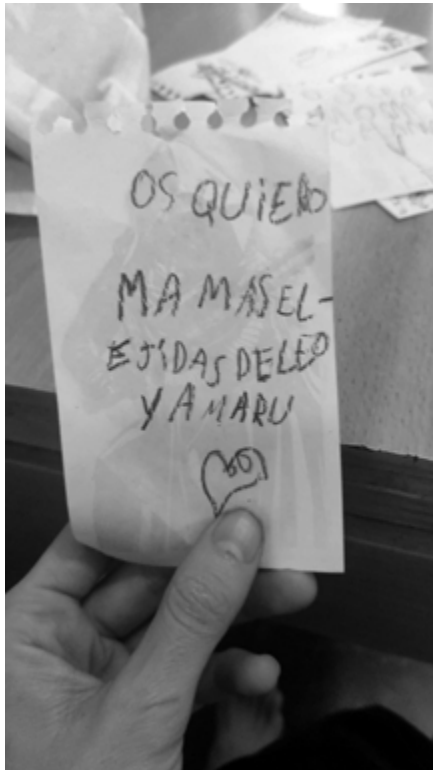 OS QUiERO
MAMASEL-
EJiDAS DE LEO
Y AMARU